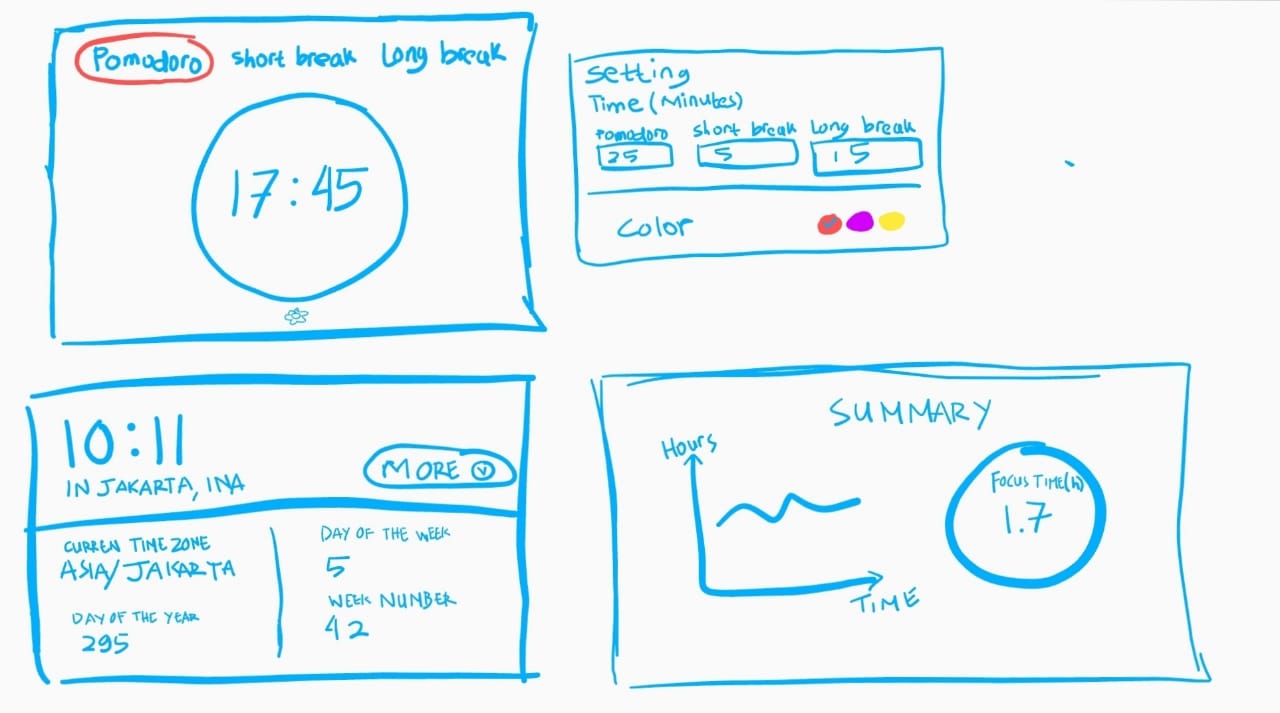 Pomodoro short break Long break
17:45
Setting
Time (Minutes)
Pomodoro short break Long break
25 5 15
Color
10:11
IN JAKARTA, INA
MORE
CURREN TIME ZONE
ASIA/JAKARTA
DAY OF THE YEAR
295
DAY OF THE WEEK
5
WEEK NUMBER
42
SUMMARY
Hours
TIME
FOCUS TIME(h)
1.7